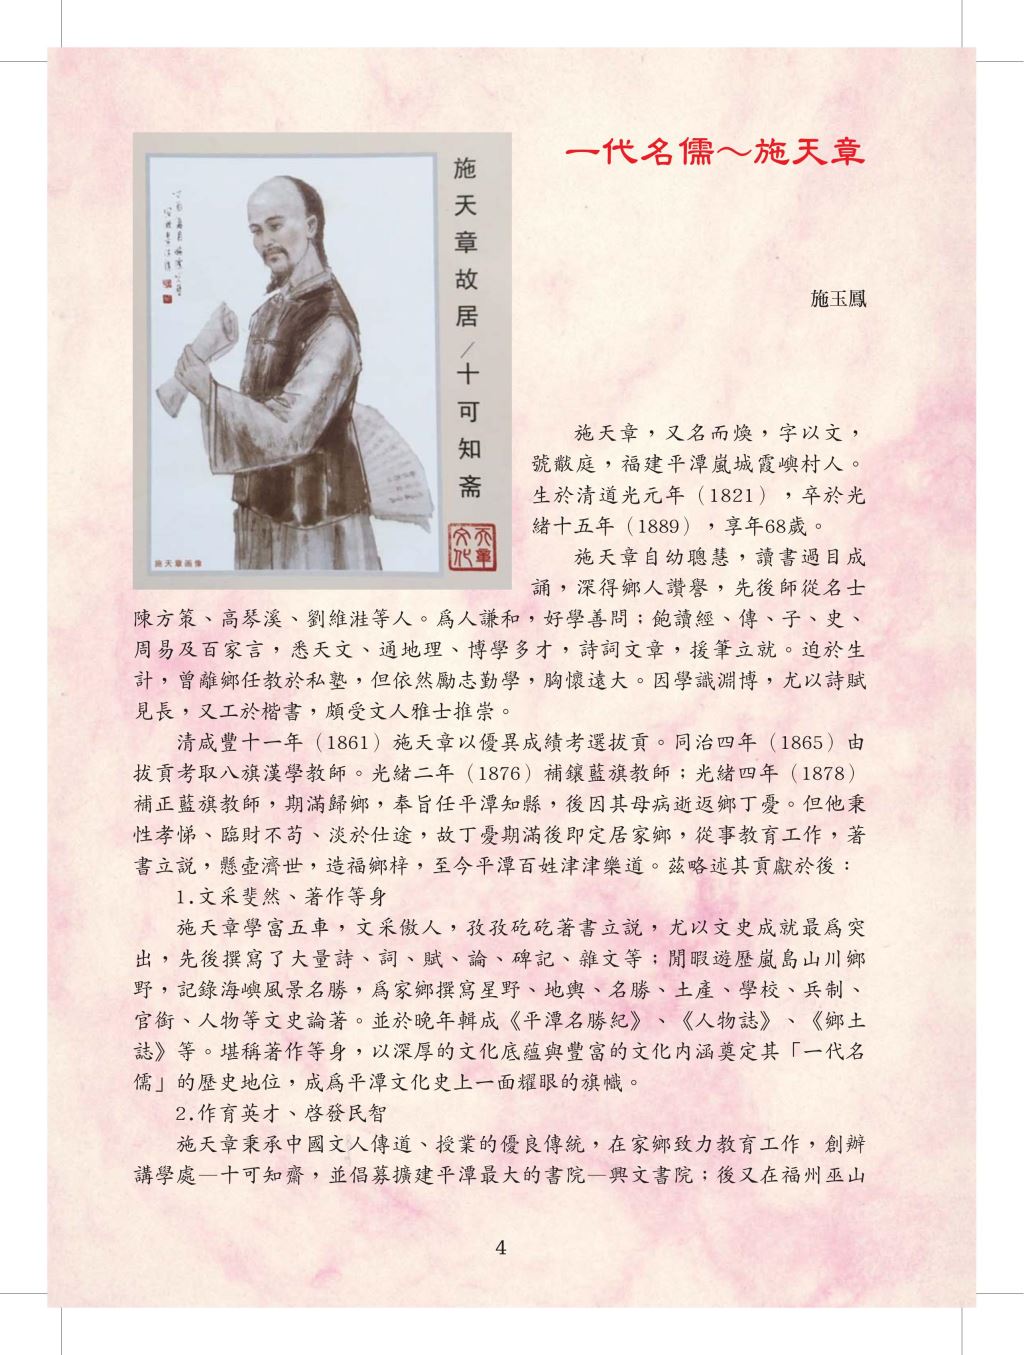 一代名儒～施天章
施玉鳳
施天章故居／十可知斋
天章文化
施天章画像
施天章，又名而煥，字以文，
號黻庭，福建平潭嵐城霞嶼村人。
生於清道光元年（1821），卒於光
緒十五年（1889），享年68歲。
施天章自幼聰慧，讀書過目成
誦，深得鄉人讚譽，先後師從名士
陳方策、高琴溪、劉維溎等人。爲人謙和，好學善問；飽讀經、傳、子、史、
周易及百家言，悉天文、通地理、博學多才，詩詞文章，援筆立就。迫於生
計，曾離鄉任教於私塾，但依然勵志勤學，胸懷遠大。因學識淵博，尤以詩賦
見長，又工於楷書，頗受文人雅士推崇。
清咸豐十一年（1861）施天章以優異成績考選拔貢。同治四年（1865）由
拔貢考取八旗漢學教師。光緒二年（1876）補鑲藍旗教師；光緒四年（1878）
補正藍旗教師，期滿歸鄉，奉旨任平潭知縣，後因其母病逝返鄉丁憂。但他秉
性孝悌、臨財不苟、淡於仕途，故丁憂期滿後即定居家鄉，從事教育工作，著
書立說，懸壺濟世，造福鄉梓，至今平潭百姓津津樂道。茲略述其貢獻於後：
1.文采斐然、著作等身
施天章學富五車，文采傲人，孜孜矻矻著書立說，尤以文史成就最爲突
出，先後撰寫了大量詩、詞、賦、論、碑記、雜文等；閒暇遊歷嵐島山川鄉
野，記錄海嶼風景名勝，爲家鄉撰寫星野、地輿、名勝、土產、學校、兵制、
官銜、人物等文史論著。並於晚年輯成《平潭名勝紀》、《人物誌》、《鄉土
誌》等。堪稱著作等身，以深厚的文化底蘊與豐富的文化內涵奠定其「一代名
儒」的歷史地位，成爲平潭文化史上一面耀眼的旗幟。
2.作育英才、啓發民智
施天章秉承中國文人傳道、授業的優良傳統，在家鄉致力教育工作，創辦
講學處—十可知齋，並倡募擴建平潭最大的書院—興文書院；後又在福州巫山
4